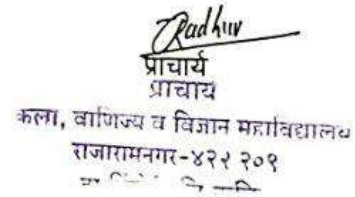 प्राचार्य
प्राचार्य
कला, वाणिज्य व विज्ञान महाविद्यालय
राजारामनगर-४२२ २०९